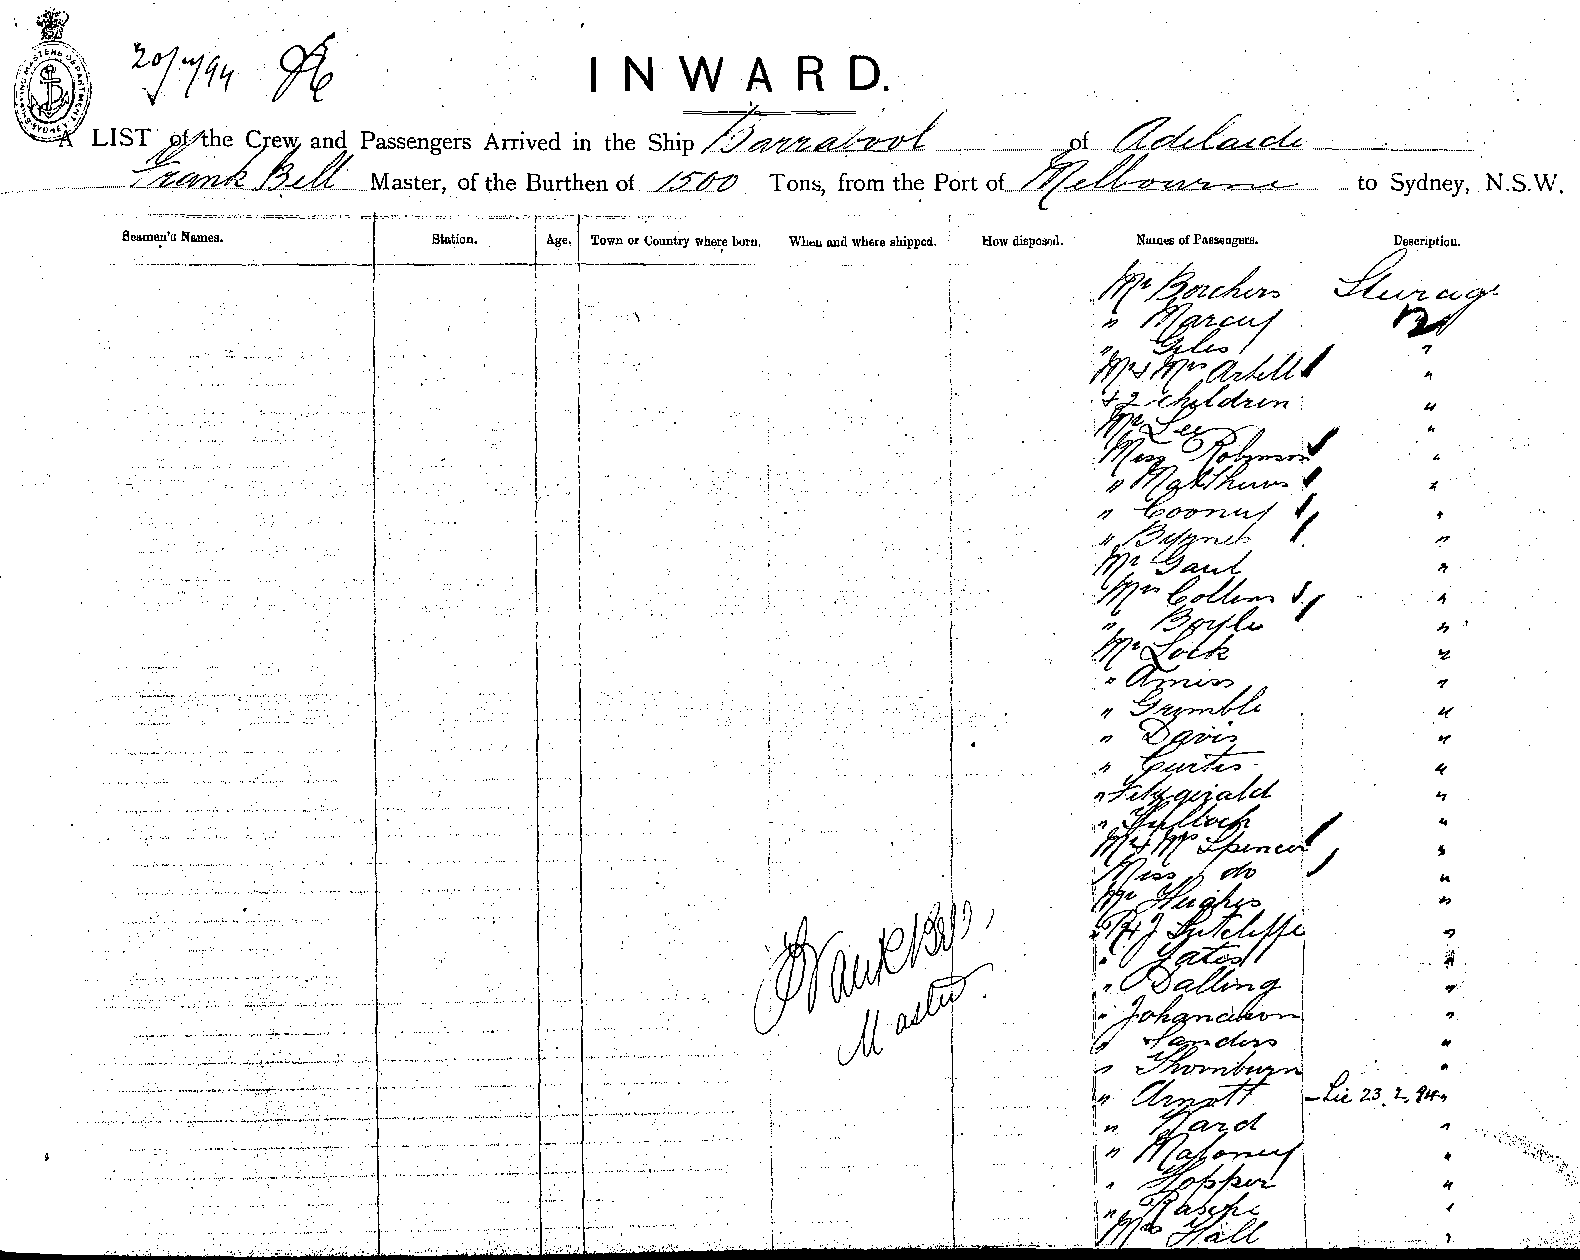 SHIPPING MASTERS DEPARTMENT SYDNEY
20/ /94
INWARD.
A LIST of the Crew and Passengers Arrived in the Ship Barrabool of Adelaide
Frank Bell Master, of the Burthen of 1500 Tons, from the Port of Melbourne to Sydney, N.S.W.
Seamen's Names. Station. Age. Town or Country where born. When and where shipped. How disposed. Names of Passengers. Description.
Mr Borchers Steerage
" Marcus
" Giles "
Mr & Mrs Arbell "
& 2 children "
Mr Lee "
Miss Robinson "
" Matthews "
" Cooney "
" Byrnes "
Mr Gaul "
Mrs Collins "
" Boyle "
Mr Lock "
" Amiss "
" Grymble "
" Davis "
" Curtis "
" Fitzgerald "
" "
Mr & Mrs Spencer "
Miss do "
Mr Hughes "
" J Sutcliffe "
" Yates "
" Dalling "
" Johanson "
" Sanders "
" Thornburn "
" Arnott - Lic 23.2.94 "
" Ward "
" Mahoney "
" Hopper "
" "
Mrs Hall "
Frank Bell,
Master.